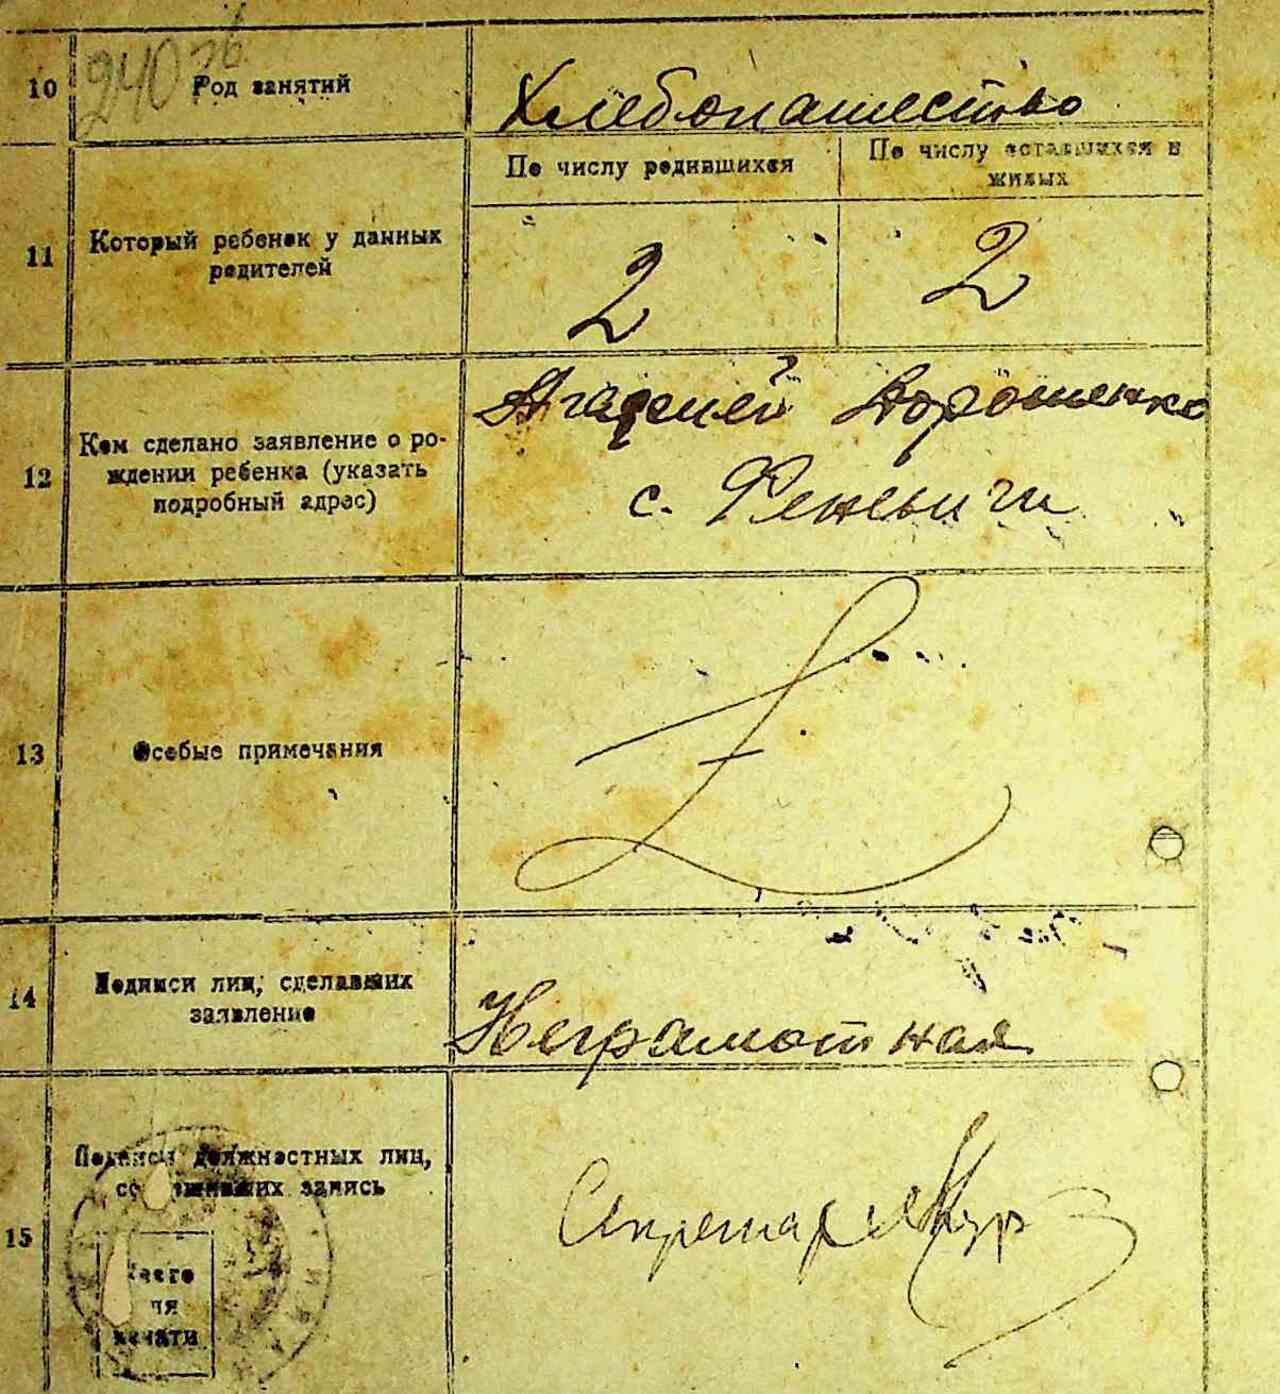 240
10
Род занятий
Хлебопашество
11
Который ребенок у данных
родителей
По числу родившихся
По числу оставшихся в
живых
2
2
12
Кем сделано заявление о ро-
ждении ребенка (указать
подробный адрес)
Агафией Дорошенко
с. Феневичи
13
Особые примечания
14
Подписи лиц, сделавших
заявление
Неграмотная
15
Подписи должностных лиц,
совершивших запись
Место
для
печати
Секретарь